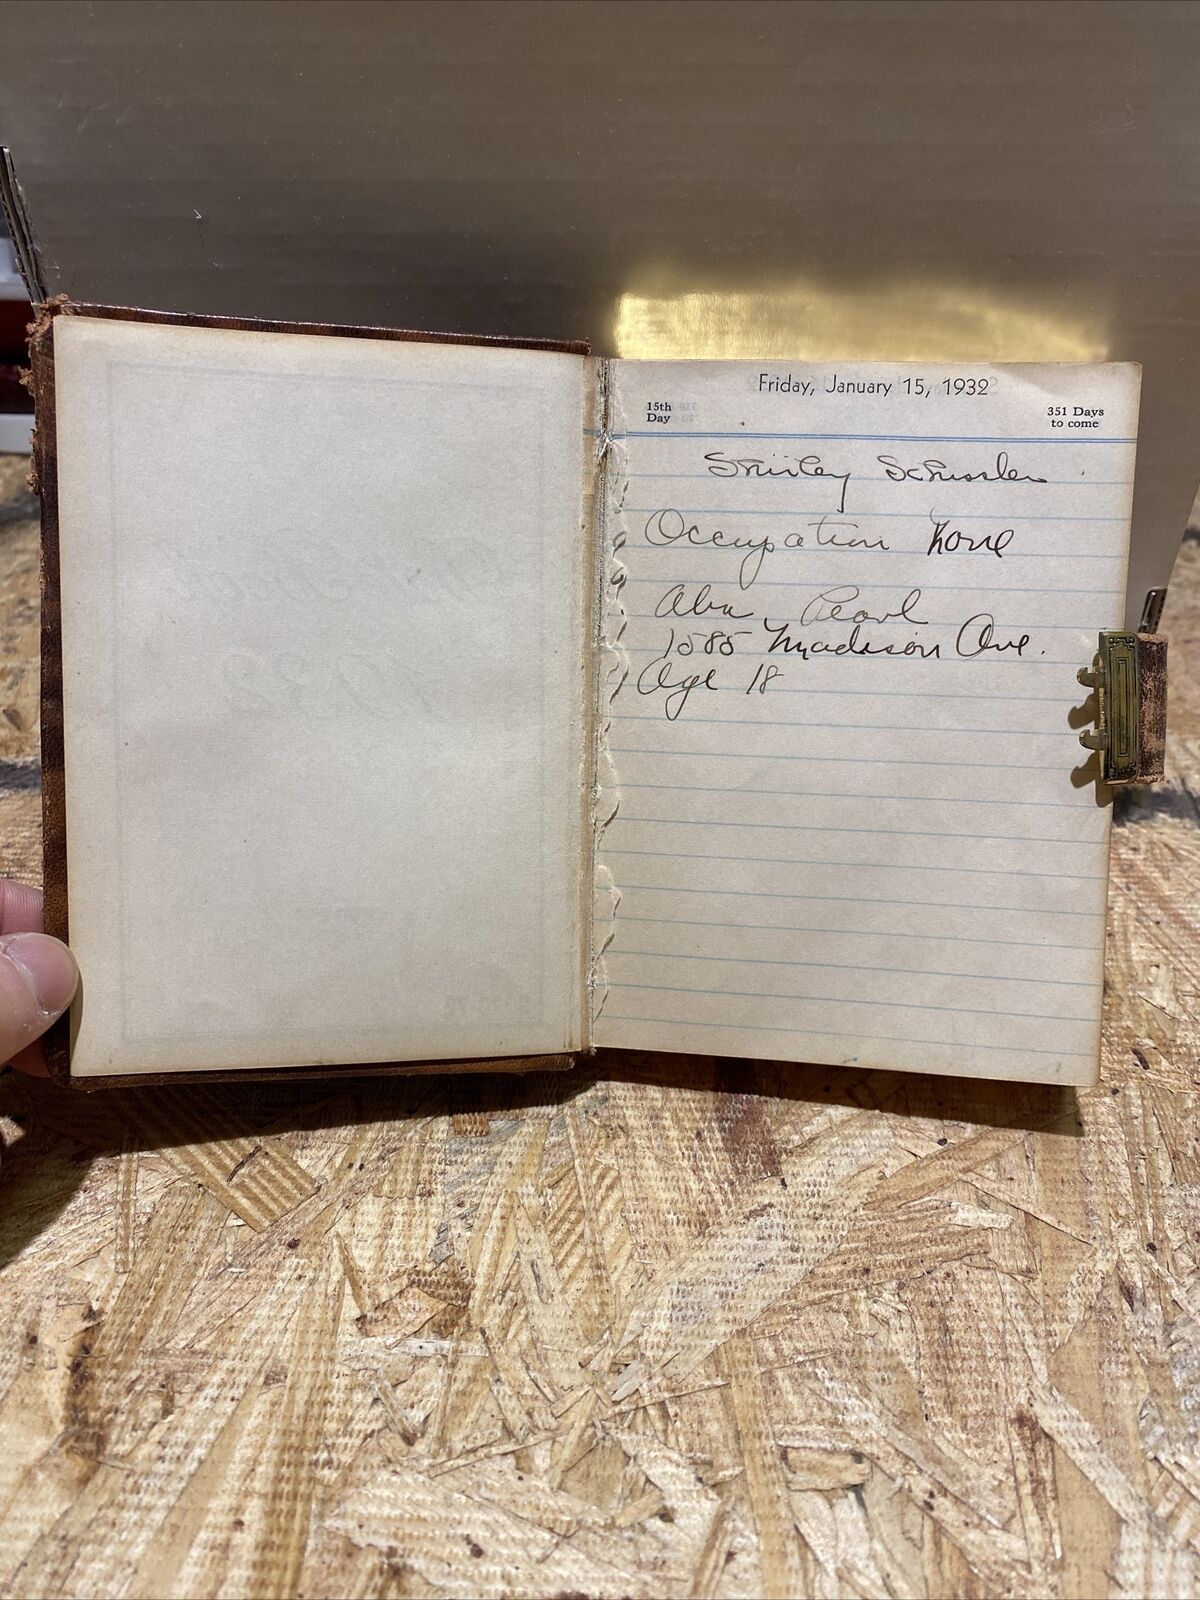 Friday, January 15, 1932
15th
Day
351 Days
to come
Shirley Schissler
Occupation none
Pearl
1585 Madison Ave.
Age 18